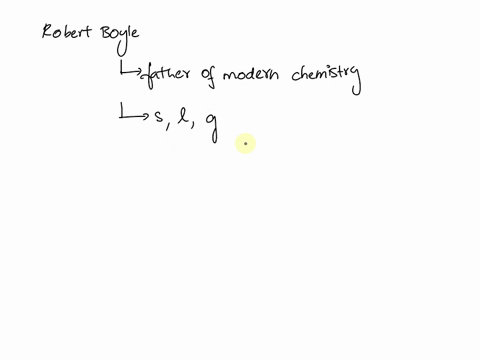 Robert Boyle
father of modern chemistry
s, l, g